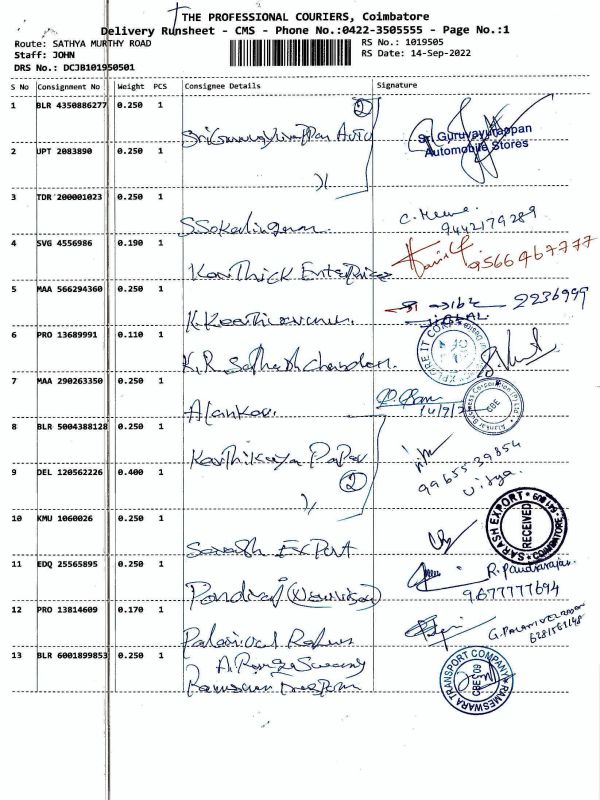 THE PROFESSIONAL COURIERS, Coimbatore
Delivery Runsheet - CMS - Phone No.:0422-3505555 - Page No.:1
Route: SATHYA MURTHY ROAD
Staff: JOHN
DRS No.: DCJB101950501
RS No.: 1019505
RS Date: 14-Sep-2022
S No Consignment No Weight PCS Consignee Details Signature
1 BLR 4350886277 0.250 1
2
Sri Guruvayurappan Auto
Sri Guruvayurappan
Automobile Stores
2 UPT 2083890 0.250 1
3 TDR 200001023 0.250 1
S Sokalingam
9442179289
4 SVG 4556986 0.190 1
Karthick Enterprises
9566467777
5 MAA 566294360 0.250 1
2236999
6 PRO 13689991 0.110 1
K.R Sathish Chandran.
7 MAA 290263350 0.250 1
Alankar
CBE
8 BLR 5004388128 0.250 1
Karthikeya Paper
2
9965539854
Vidya.
9 DEL 120562226 0.400 1
10 KMU 1060026 0.250 1
Sarash Export
SARASH EXPORT
RECEIVED
COIMBATORE
11 EDQ 25565895 0.250 1
R. Pandiarajan
9677777694
12 PRO 13814609 0.170 1
G. PALANIVEL RAJAN
13 BLR 6001899853 0.250 1
A. Rangasamy
RAMESWARA TRANSPORT COMPANY
CBE-09